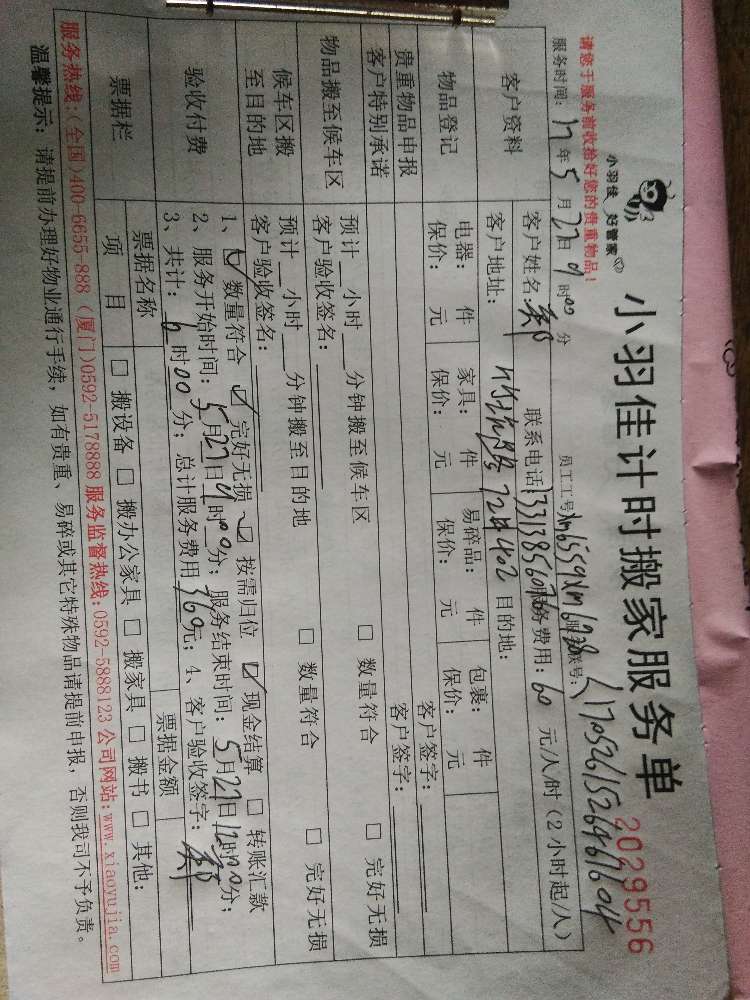 请您于服务前收拾好您的贵重物品！
小羽佳 好管家
小羽佳计时搬家服务单
2029556
服务时间：17年5月27日9时00分
员工工号：
账号：
客户资料
客户姓名：郑
联系电话：
服务费用：60元/人/时（2小时起/人）
客户地址：
72#402
目的地：
物品登记
电器： 件 家具： 件 易碎品： 件 包裹： 件 客户签字：
保价： 元 保价： 元 保价： 元 保价： 元
贵重物品申报
客户特别承诺
客户签字：
物品搬至候车区
预计 小时 分钟搬至候车区 □ 数量符合 □ 完好无损
客户验收签名：
候车区搬
至目的地
预计 小时 分钟搬至目的地 □ 数量符合 □ 完好无损
客户验收签名：
验收付费
1、☑ 数量符合 ☑ 完好无损 ☑ 按需归位 ☑ 现金结算 □ 转账汇款
2、服务开始时间：5月27日9时00分；服务结束时间：5月27日12时00分；
3、共计：6时00分；总计服务费用360元；4、客户验收签字：郑
票据栏
票据名称 票据金额
项 目 □ 搬设备 □ 搬办公家具 □ 搬家具 □ 搬书 □ 其他：
服务热线：(全国)400-6655-888 (厦门)0592-5178888 服务监督热线：0592-5888123 公司网站：www.xiaoyujia.com
温馨提示：请提前办理好物业通行手续，如有贵重、易碎或其它特殊物品请提前申报，否则我司不予负责。